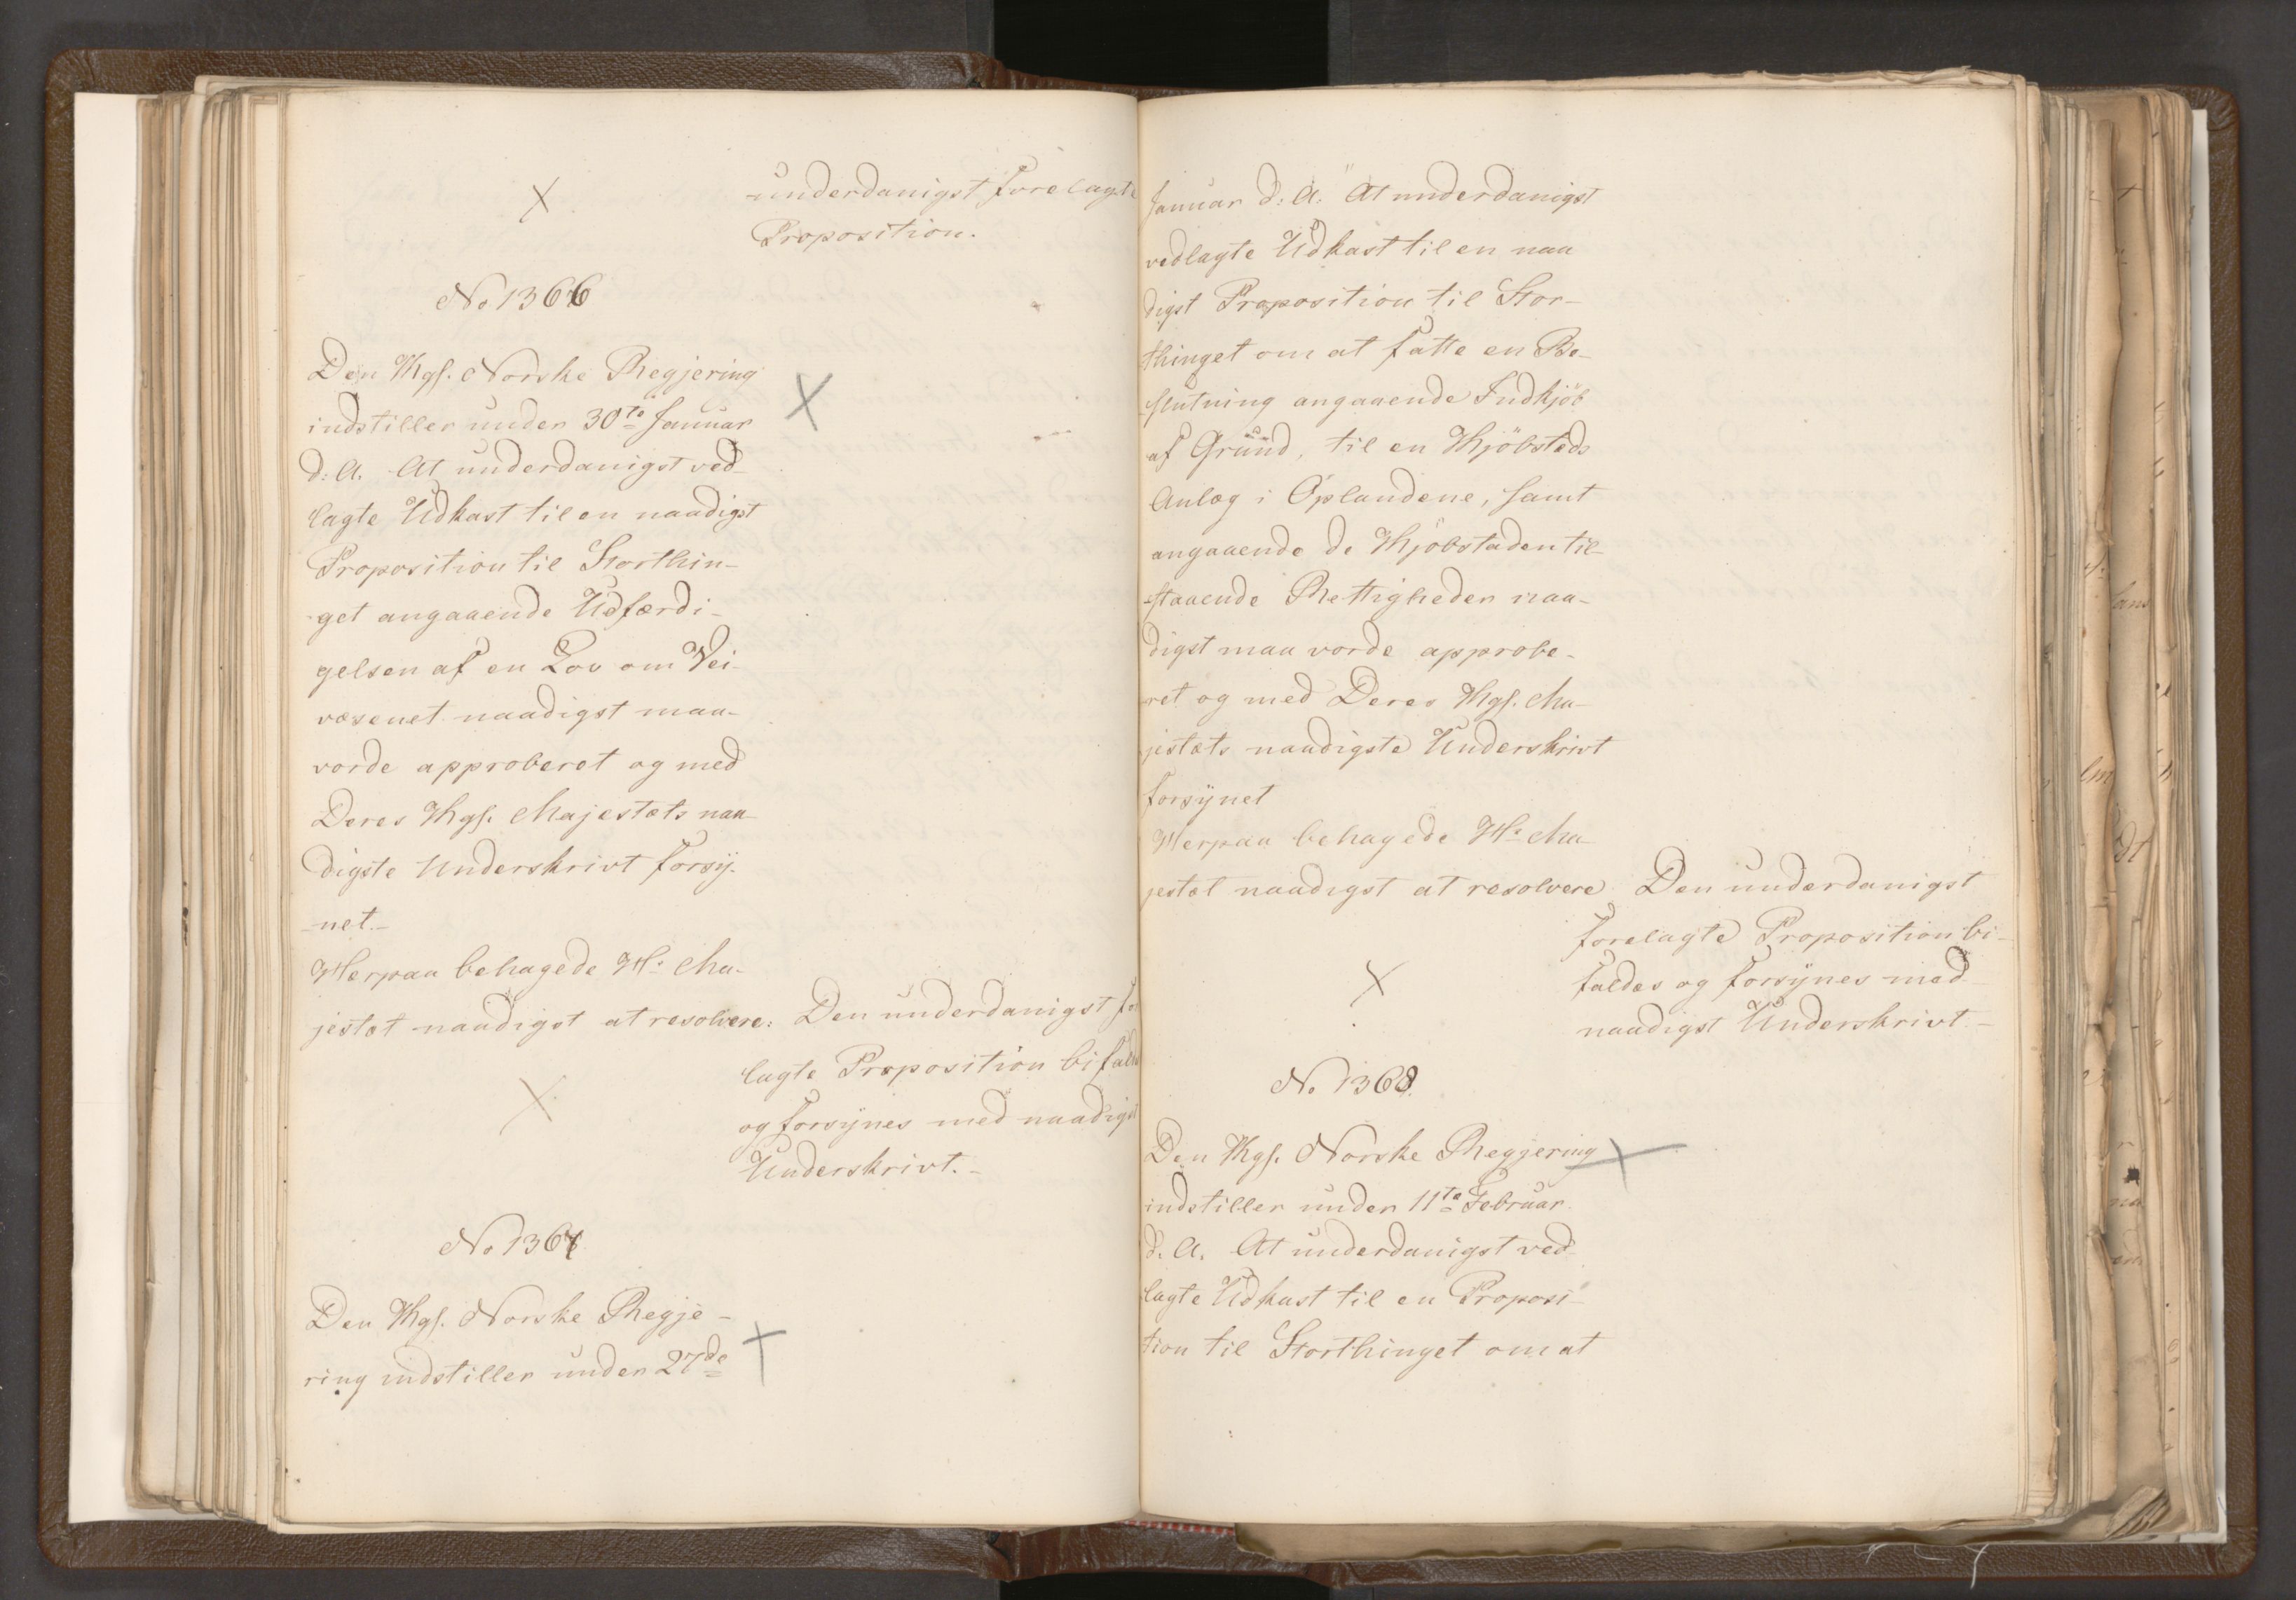 underdanigst forelagte
Proposition.
No 1366
Den Kgs. Norske Regjering
indstiller under 30te Januar
d: A. At underdanigst ved-
lagte Udkast til en naadigst
Proposition til Storthin-
get angaaende Udfærdi-
gelsen af en Lov om Vei-
væsenet naadigst maa-
vorde approberet og med
Deres Kgs. Majestæts naa-
digste Underskrivt forsÿ-
-net.-
Herpaa behagede Hs Ma-
jestæt naadigst at resolvere: Den underdanigst fo
lagte Proposition bifald
og forsÿnes med naadigst
Underskrivt.-
No 1367
Den Kgs. Norske Regje-
ring indstiller under 27de
Januar d: A: At underdanigst
vedlagte Udkast til en naa
digst Proposition til Stor-
thinget om at fatte en Be-
slutning angaaende Indkjöb
af Grund, til en Kjöbsteds
Anlæg i Oplandene, samt
angaaende de Kjöbstaden til-
-staaende Rettigheder naa-
digst maa vorde approbe-
ret og med Deres Kgs. Ma-
jestæts naadigste Underskrivt
forsÿnet
Herpaa behagede Hs Ma-
jestæt naadigst at resolvere Den underdanigst
forelagte Proposition bi-
faldes og forsÿnes med
naadigst Underskrivt.-
No 1368.
Den Kgs. Norske Regjering
indstiller under 11te Februar
d: A. At underdanigst ved-
lagte Udkast til en Proposi-
tion til Storthinget om at